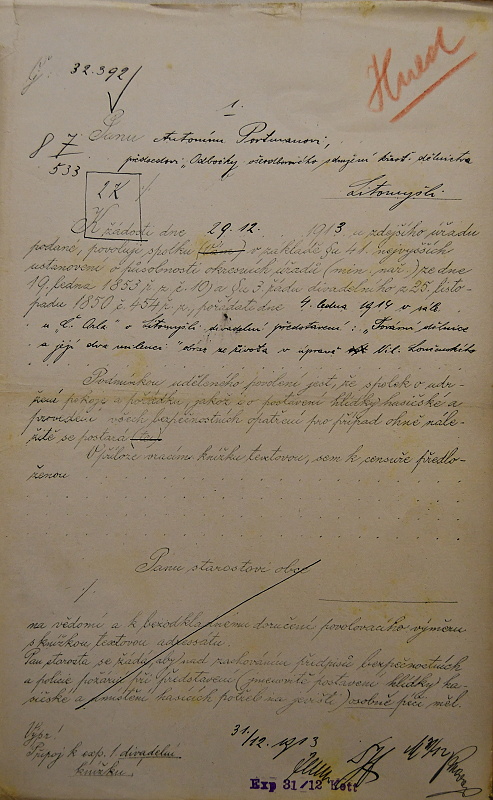 Č. 32.392/
Ihned
1.
Panu Antonínu Portmanovi,
8 7/533
předsedovi „Odbočky všeodborného sdružení křesť. dělnictva
2 K
Litomyšli
K žádosti dne 29.12. 1913 u zdejšího úřadu
podané, povoluji spolku v základě §u 41. nejvyšších
ustanovení o působnosti okresních úřadů (min. nař.) ze dne
19. ledna 1853 ř. z. č. 10) a §u 3 řádu divadelního z 25. listo-
padu 1850 č. 454 ř. z., pořádati dne 4. ledna 1914 v sále
u „Č. Orla" v Litomyšli divadelní představení: „Tovární dělnice
a její dva milenci" obraz ze života v úpravě Vil.
Podmínkou uděleného povolení jest, že spolek o udr-
žení pokoje a pořádku, jakož i o postavení hlídky hasičské a
provedení všech bezpečnostních opatření pro případ ohně nále-
žitě se postará
V příloze vracím knížku textovou, sem k censuře předlo-
ženou.
Panu starostovi obce
na vědomí a k bezodkladnému doručení povolovacího výměru
s knížkou textovou adressátu.
Pan starosta se žádá, aby nad zachováním předpisů bezpečnostních
a policie požární při představení (jmenovitě postavení hlídky ha-
sičské a umístění hasicích potřeb na jevišti) osobně péči měl.
Vypr!
Připoj k exp. 1 divadelní
knížku.
31/12 1913
Exp 31/12 Kott